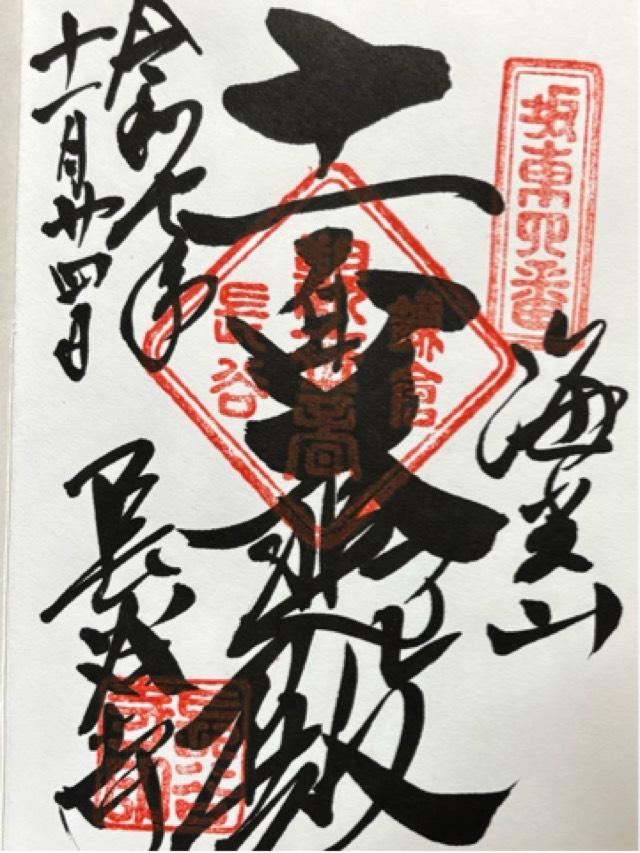 坂東四番
海光山
十一面大悲殿
鎌倉
観世音
長谷
令和七年
十一月廿四日
長谷寺